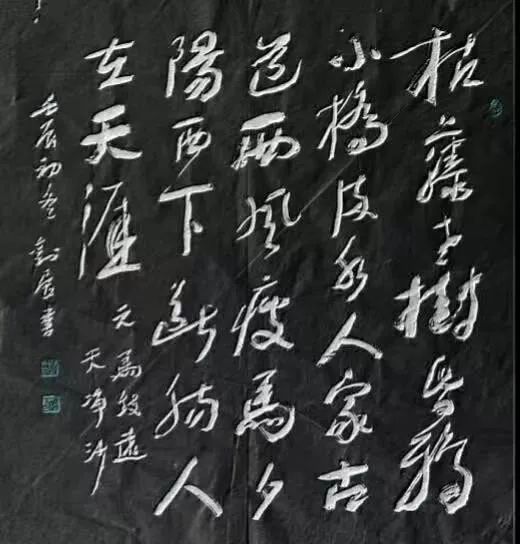 枯藤老樹昏鴉
小橋流水人家古
道西風瘦馬夕
陽西下斷腸人
在天涯
元馬致遠
天净沙
壬辰初冬劉書